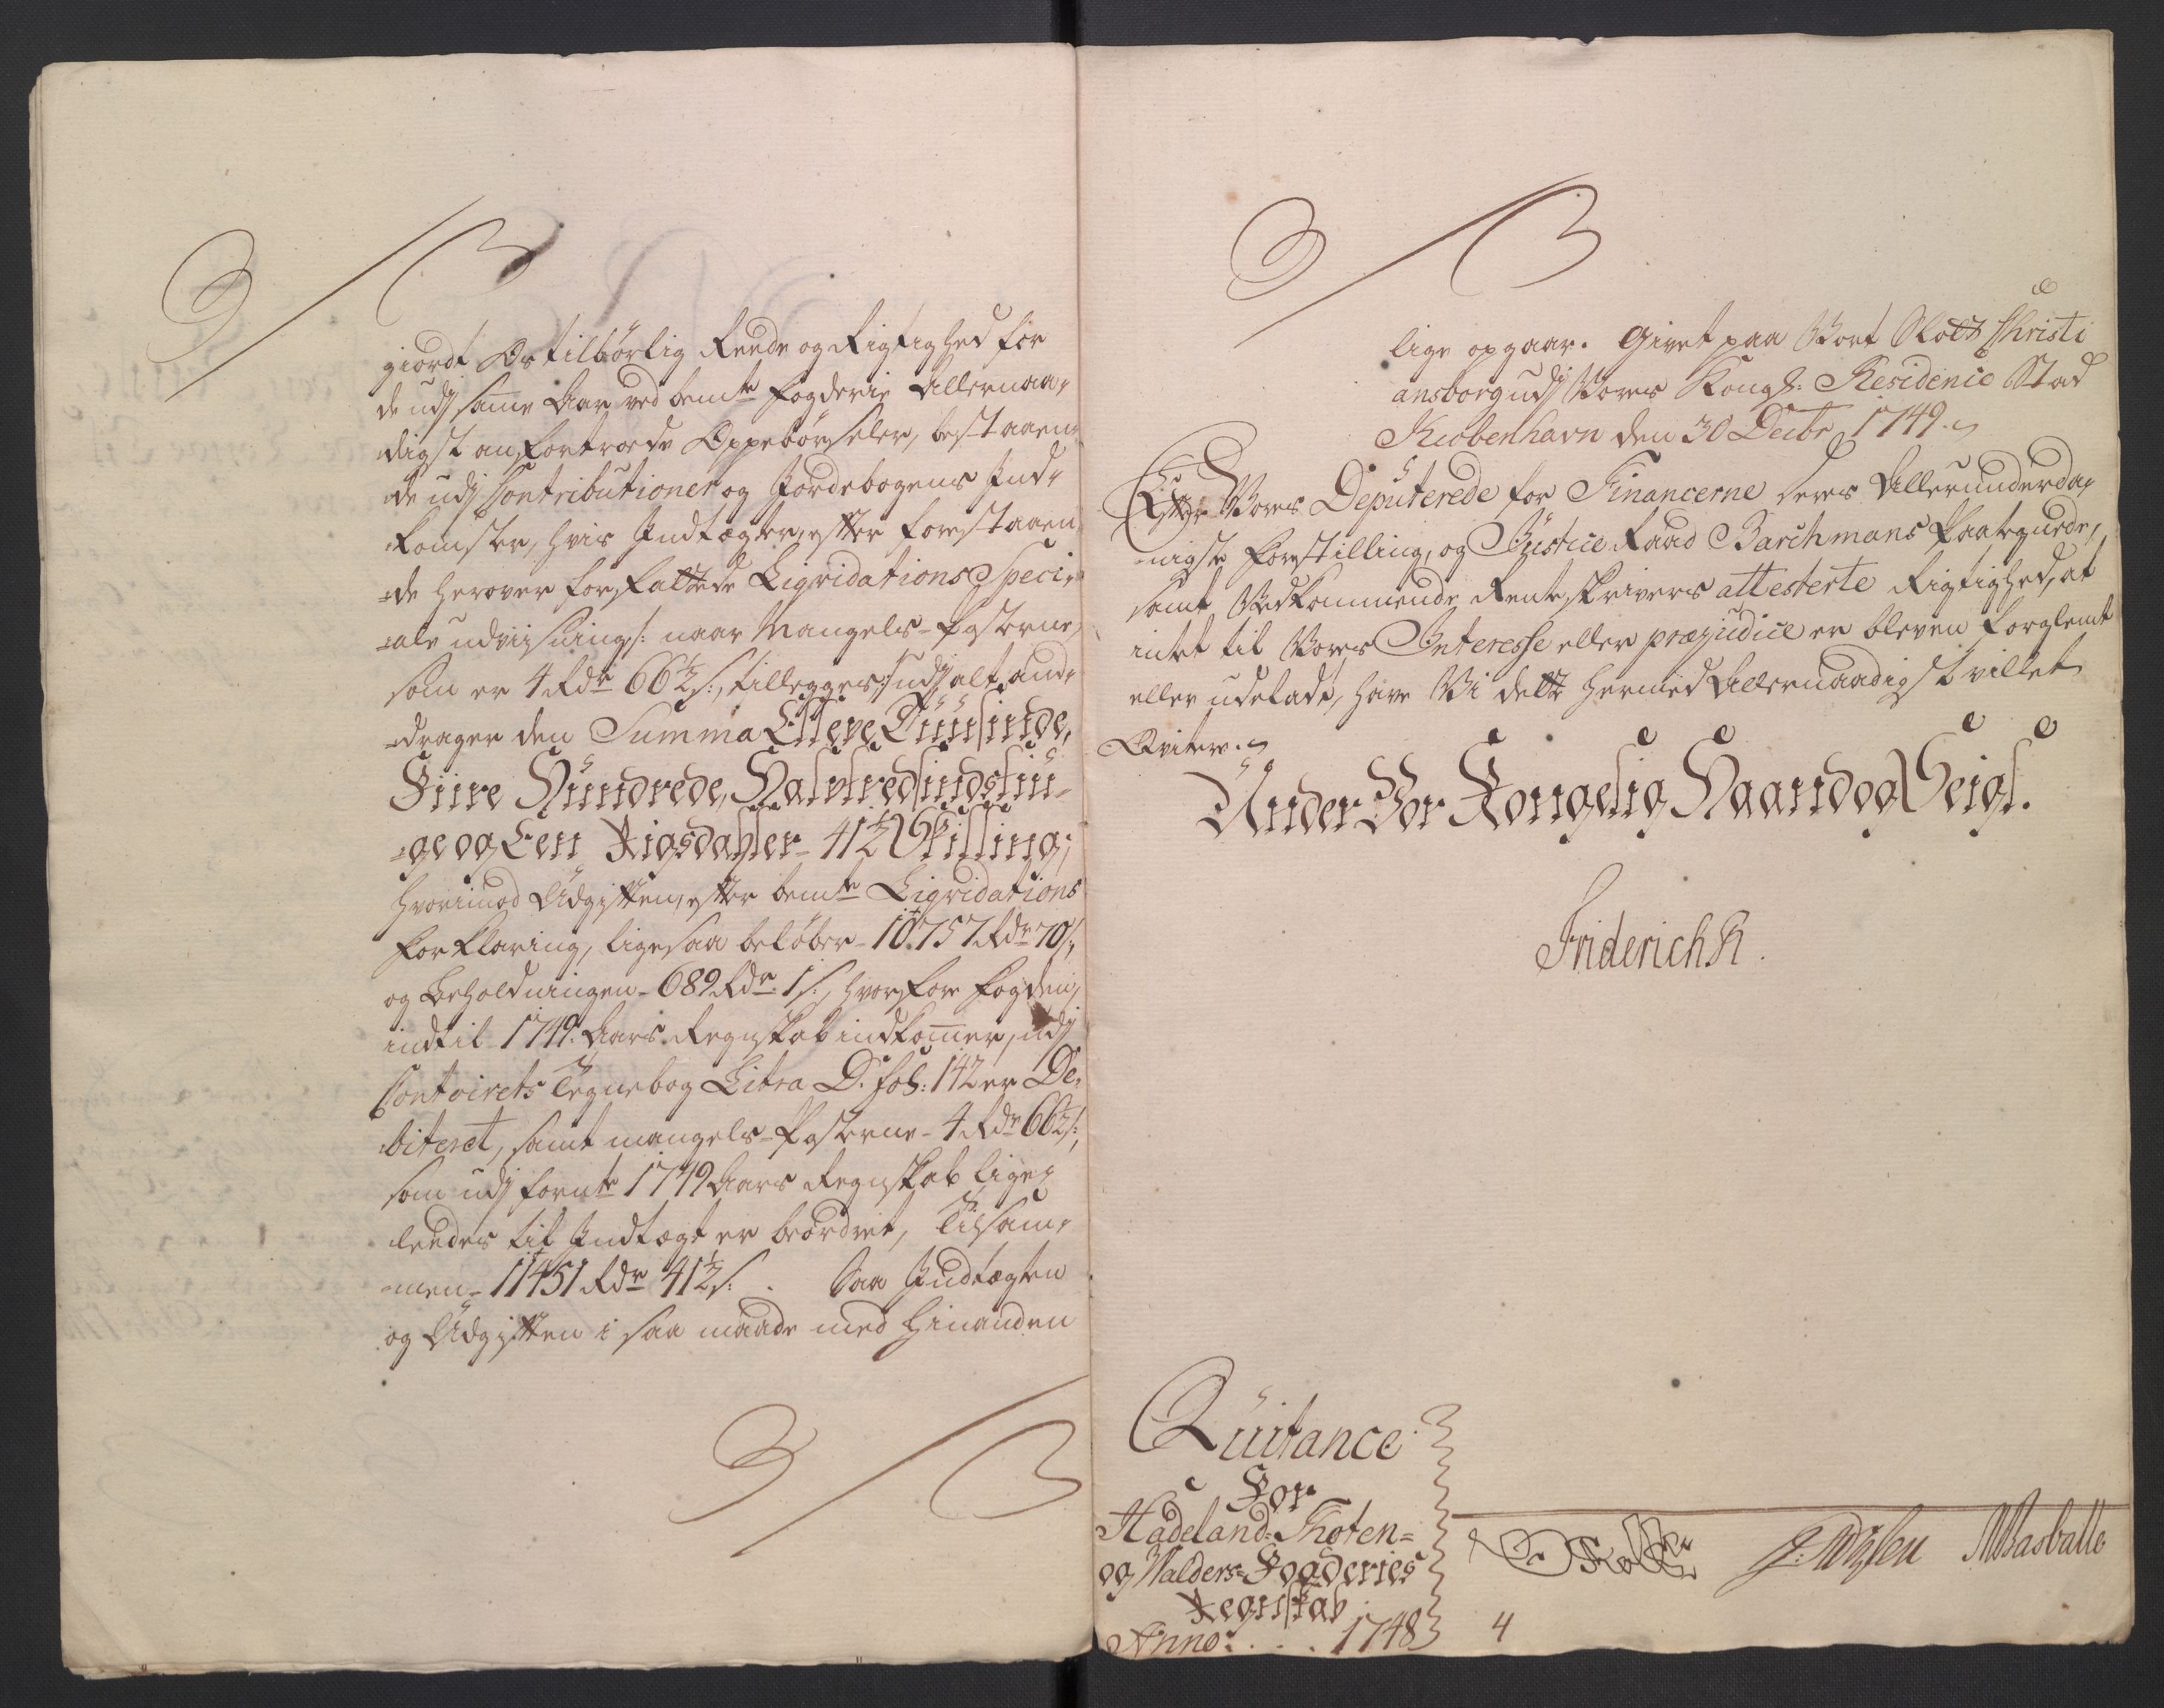 giordt Os tilbörlig Reede og Rigtighed for
de udj samme Aar ved bemte Fogderie Allernaa-
digst anfortroede Oppebörseler, bestaaen-
de udj Contributioner og Jordebogens Ind-
komster, hvis Indtægter, efter forestaaen-
de herover forfattede Liqvidations Speci-
ale udviisning/: naar Mangels-Posterne,
som er 4 Rdr 66½ s:, tillegges:/ udj alt and-
drager den Summa Elleve Tüüsinde,
Fiire Hündrede, Halvtredsindstiü-
ge og Een Rigsdahler 41½ Skilling;
hvorimod Udgiften, efter bemte Liqvidations
Forklaring, ligesaa beløber 10757 Rdr 70 s:,
og Beholdningen 689 Rdr 1 s:, hvorfore Fogden,
indtil 1749 Aars Regnskab indkommer, udj
Contoirets Tegnebog Litra D. fol: 142 er De-
biteret, samt mangels-Posterne 4 Rdr 66½ s:,
som udj fornte 1749 Aars Regnskab lige-
leedes til Indtægt er beordret, Tilsam-
men 11451 Rdr 41½ s: . Saa Indtægten
og Udgiften i saa maade med hinanden
lige opgaar. Givet paa Vort Slott Christi
ansborg udj Vores Kongl: Residence Stad
Kiöbenhavn den 30 Decbr 1749.
Efter Vores Deputerede for Financerne deres Allerunderda-
nigste Forestilling, og Justice Raad Barchmans Paategnede,
samt Vedkommende Renteskrivers attesterte Rigtighed, at
intet til Vores Interesse eller præjudice er bleven forglemt
eller udeladt, have Vi dette hermed Allernaadigst villet
Qvitere.
Under Vor Kongelig Haand og Seigl.
Friderich R.
Quitance
For
Hadeland Thoten=
og Walders Fogderies
Regnskab
Anno . . . . 1748
4